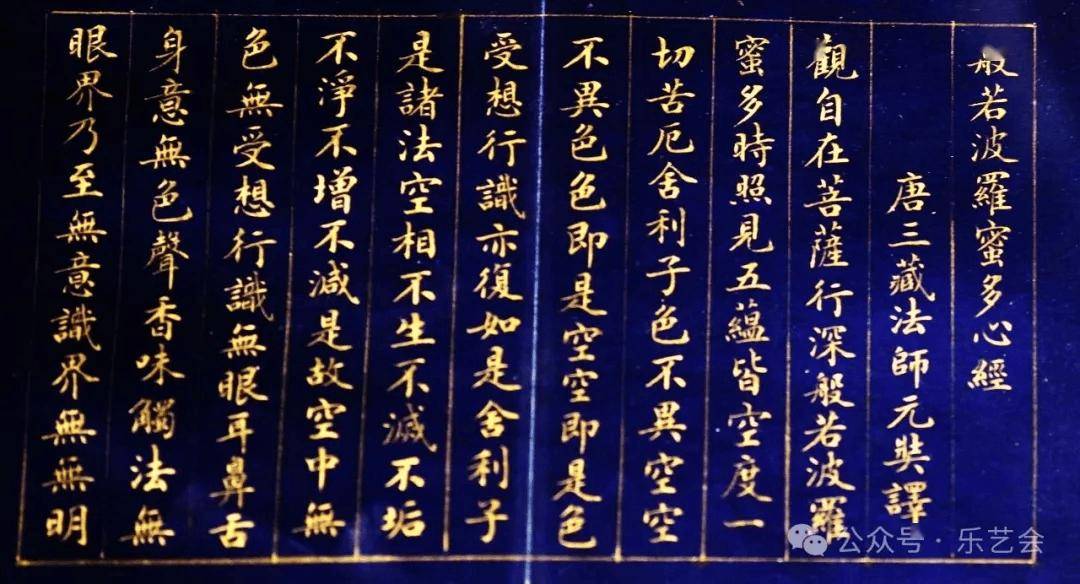 般若波羅蜜多心經
唐三藏法師元奘譯
觀自在菩薩行深般若波羅
蜜多時照見五蘊皆空度一
切苦厄舍利子色不異空空
不異色色即是空空即是色
受想行識亦復如是舍利子
是諸法空相不生不滅不垢
不淨不增不減是故空中無
色無受想行識無眼耳鼻舌
身意無色聲香味觸法無
眼界乃至無意識界無無明
公众号·乐艺会